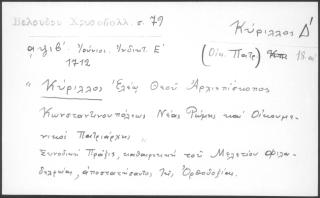 Βελούδου Χρυσόβουλλ. σ. 79
Κύριλλος Δ'
αψιβ' Ἰούνιος. Ἰνδικτ. Ε'
(Οἰκ. Πατρ) 18 αἰ
1712
" Κύριλλος Ἐλέῳ Θεοῦ Ἀρχιεπίσκοπος
Κωνσταντινουπόλεως Νέας Ῥώμης καὶ Οἰκουμε-
νικὸς Πατριάρχης "
Συνοδικὴ Πράξις, καθαιρετικὴ τοῦ Μελετίου Φιλα-
δελφείας, ἀποστατήσαντος τῆς Ὀρθοδοξίας.